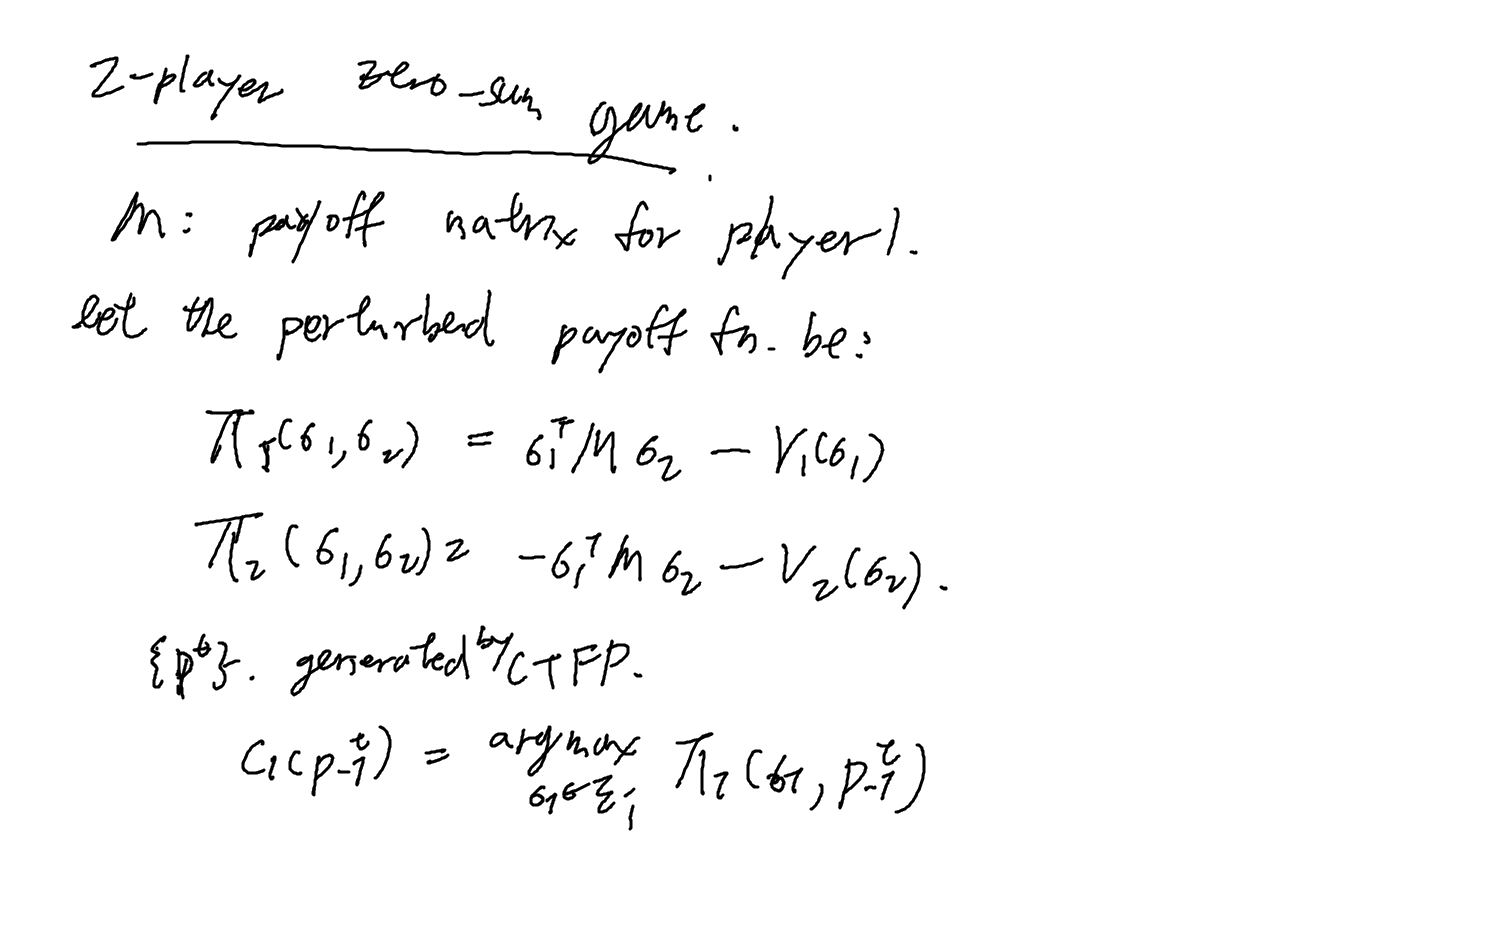 2-player zero-sum game.
M: payoff matrix for player 1.
let the perturbed payoff fn. be:
π₁(σ₁,σ₂) = σ₁ᵀMσ₂ − V₁(σ₁)
π₂(σ₁,σ₂) = −σ₁ᵀMσ₂ − V₂(σ₂).
{pᵗ}. generated by CTFP.
Cᵢ(p₋ᵢᵗ) = argmax πᵢ(σᵢ, p₋ᵢᵗ)
σᵢ∈Σᵢ